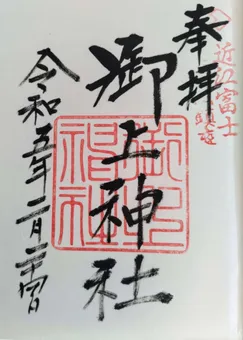 近江富士
鎮座
奉拝
御上神社
御上神社
令和五年二月二十四日